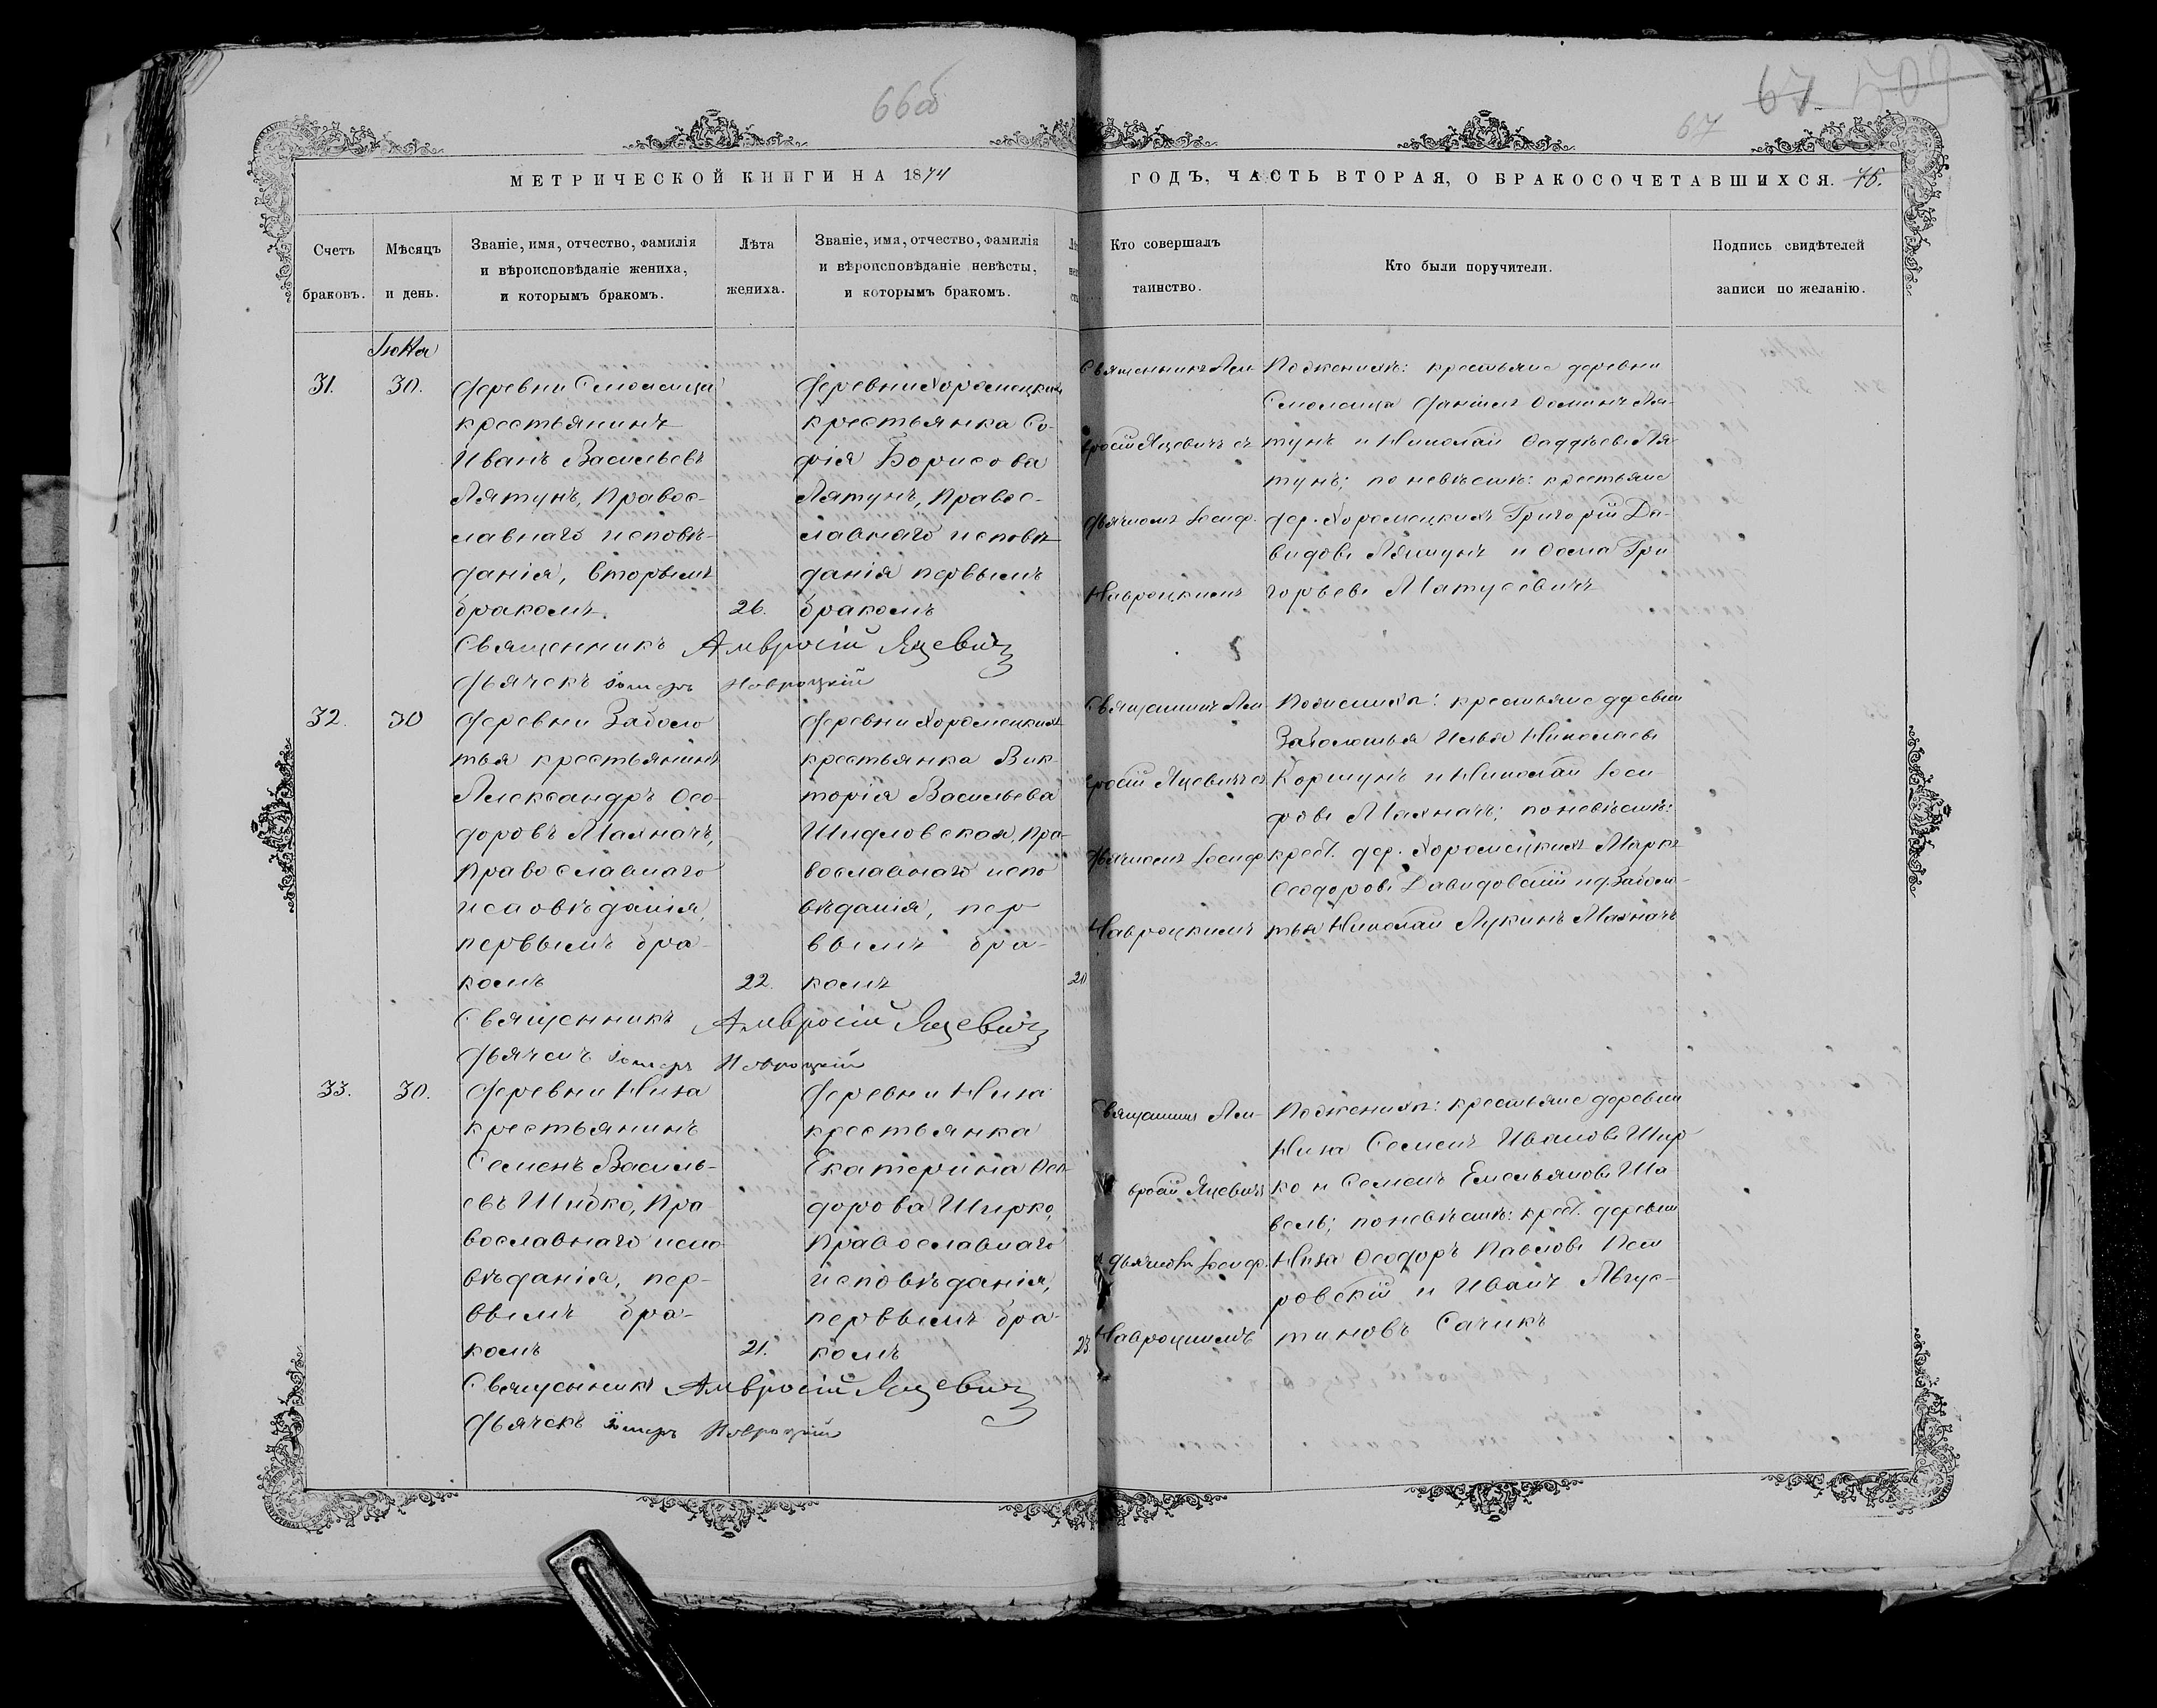 66об
67
67 509
МЕТРИЧЕСКОЙ КНИГИ НА 1874
ГОДЪ, ЧАСТЬ ВТОРАЯ, О БРАКОСОЧЕТАВШИХСЯ.
Счетъ
браковъ.
Мѣсяцъ
и день.
Званіе, имя, отчество, фамилія
и вѣроисповѣданіе жениха,
и которымъ бракомъ.
Лѣта
жениха.
Званіе, имя, отчество, фамилія
и вѣроисповѣданіе невѣсты,
и которымъ бракомъ.
Кто совершалъ
таинство.
Кто были поручители.
Подпись свидѣтелей
записи по желанію.
31.
30.
Деревни
крестьянинъ
Иванъ Васильевъ
Лятунъ, Правос-
лавнаго исповѣ-
данія, вторымъ
бракомъ.
26.
Деревни Хоромецкихъ
крестьянка Со-
фія Борисова
Лятунъ, Правос-
лавнаго исповѣ-
данія первымъ
бракомъ
Священникъ Ам-
вросій Яцевичъ съ
дьячкомъ Іосиф.
Навроцкимъ
По женихѣ: крестьяне деревни
Даніилъ Ля-
тунъ и Николай Ля-
тунъ; по невѣстѣ: крестьяне
дер. Хоромецкихъ Григорій Да-
видовъ Лятунъ и Фома Гри
горьевъ Матусевичъ
Священникъ Амвросій Яцевичъ
Дьячекъ Іосифъ Навроцкій
32.
30
Деревни Заболо
тья крестьянинъ
Александръ Ѳео-
доровъ Махначъ,
православнаго
исповѣданія,
первымъ бра-
комъ
22.
Деревни Хоромецкихъ
крестьянка Вик-
торія Васильева
Шидловская, Пра-
вославнаго испо
вѣданія, пер
вымъ бра-
комъ
20
Священникъ Ам
вросій Яцевичъ съ
дьячкомъ Іосиф.
Навроцкимъ
По женихѣ: крестьяне деревни
Заболотья Илья Николаевъ
Коршунъ и Николай Іоси
фовъ Махначъ; по невѣстѣ:
крест. дер. Хоромецкихъ Маркъ
Ѳеодоровъ Давидовскій и д. Заболо-
тья Николай Лукинъ Махначъ
Священникъ Амвросій Яцевичъ
Дьячекъ Іосифъ Навроцкій
33.
30.
Деревни Низа
крестьянинъ
Семенъ Василь-
евъ Шибко, Пра
вославнаго испо
вѣданія, пер-
вымъ бра-
комъ
21.
Деревни Низа
крестьянка
Екатерина Ѳео-
дорова Ширко,
православнаго
исповѣданія,
первымъ бра-
комъ
23
Священникъ Ам-
вросій Яцевичъ
дьячкомъ Іосиф.
Навроцкимъ
По женихѣ: крестьяне деревни
Низа Семенъ Ивановъ Шир
ко и Семенъ Емельяновъ Ша
вель; по невѣстѣ: крест. деревни
Низа Ѳеодоръ Павловъ Пет
ровскій и Иванъ Авгус-
тиновъ Сачикъ
Священникъ Амвросій Яцевичъ
Дьячекъ Іосифъ Навроцкій